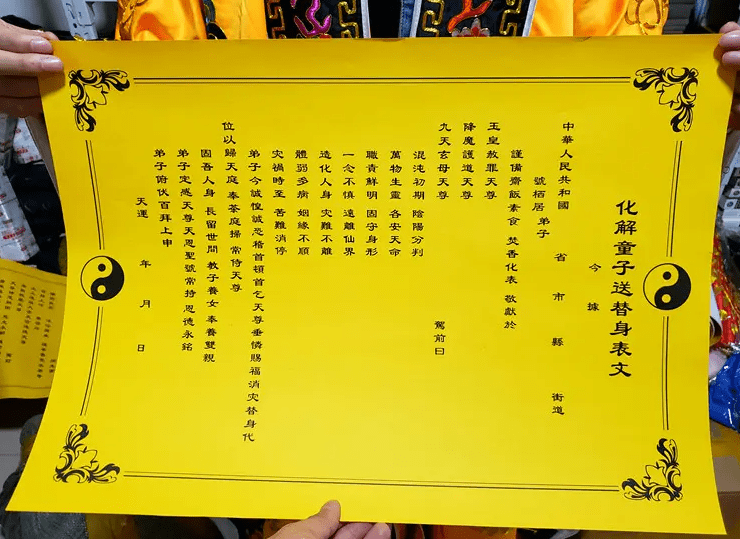 化解童子送替身表文
今據
中華人民共和國 省 市 縣 街道
號栖居 弟子
謹備齋飯素食 焚香化表 敬獻於
玉皇赦罪天尊
降魔護道天尊
九天玄母天尊 駕前曰
混沌初期 陰陽分判
萬物生靈 各安天命
職責鮮明 固守身形
一念不慎 遠離仙界
造化人身 灾難不離
體弱多病 姻緣不順
灾禍時至 苦難消停
弟子今誠惶誠恐稽首頓首乞天尊垂憐賜福消灾替身代
位以歸天庭奉茶庭操常侍天尊
固吾人身 長留世間 教子養女 奉養雙親
弟子定感天尊天恩聖號常持恩德永銘
弟子俯伏百拜上申
天運 年 月 日